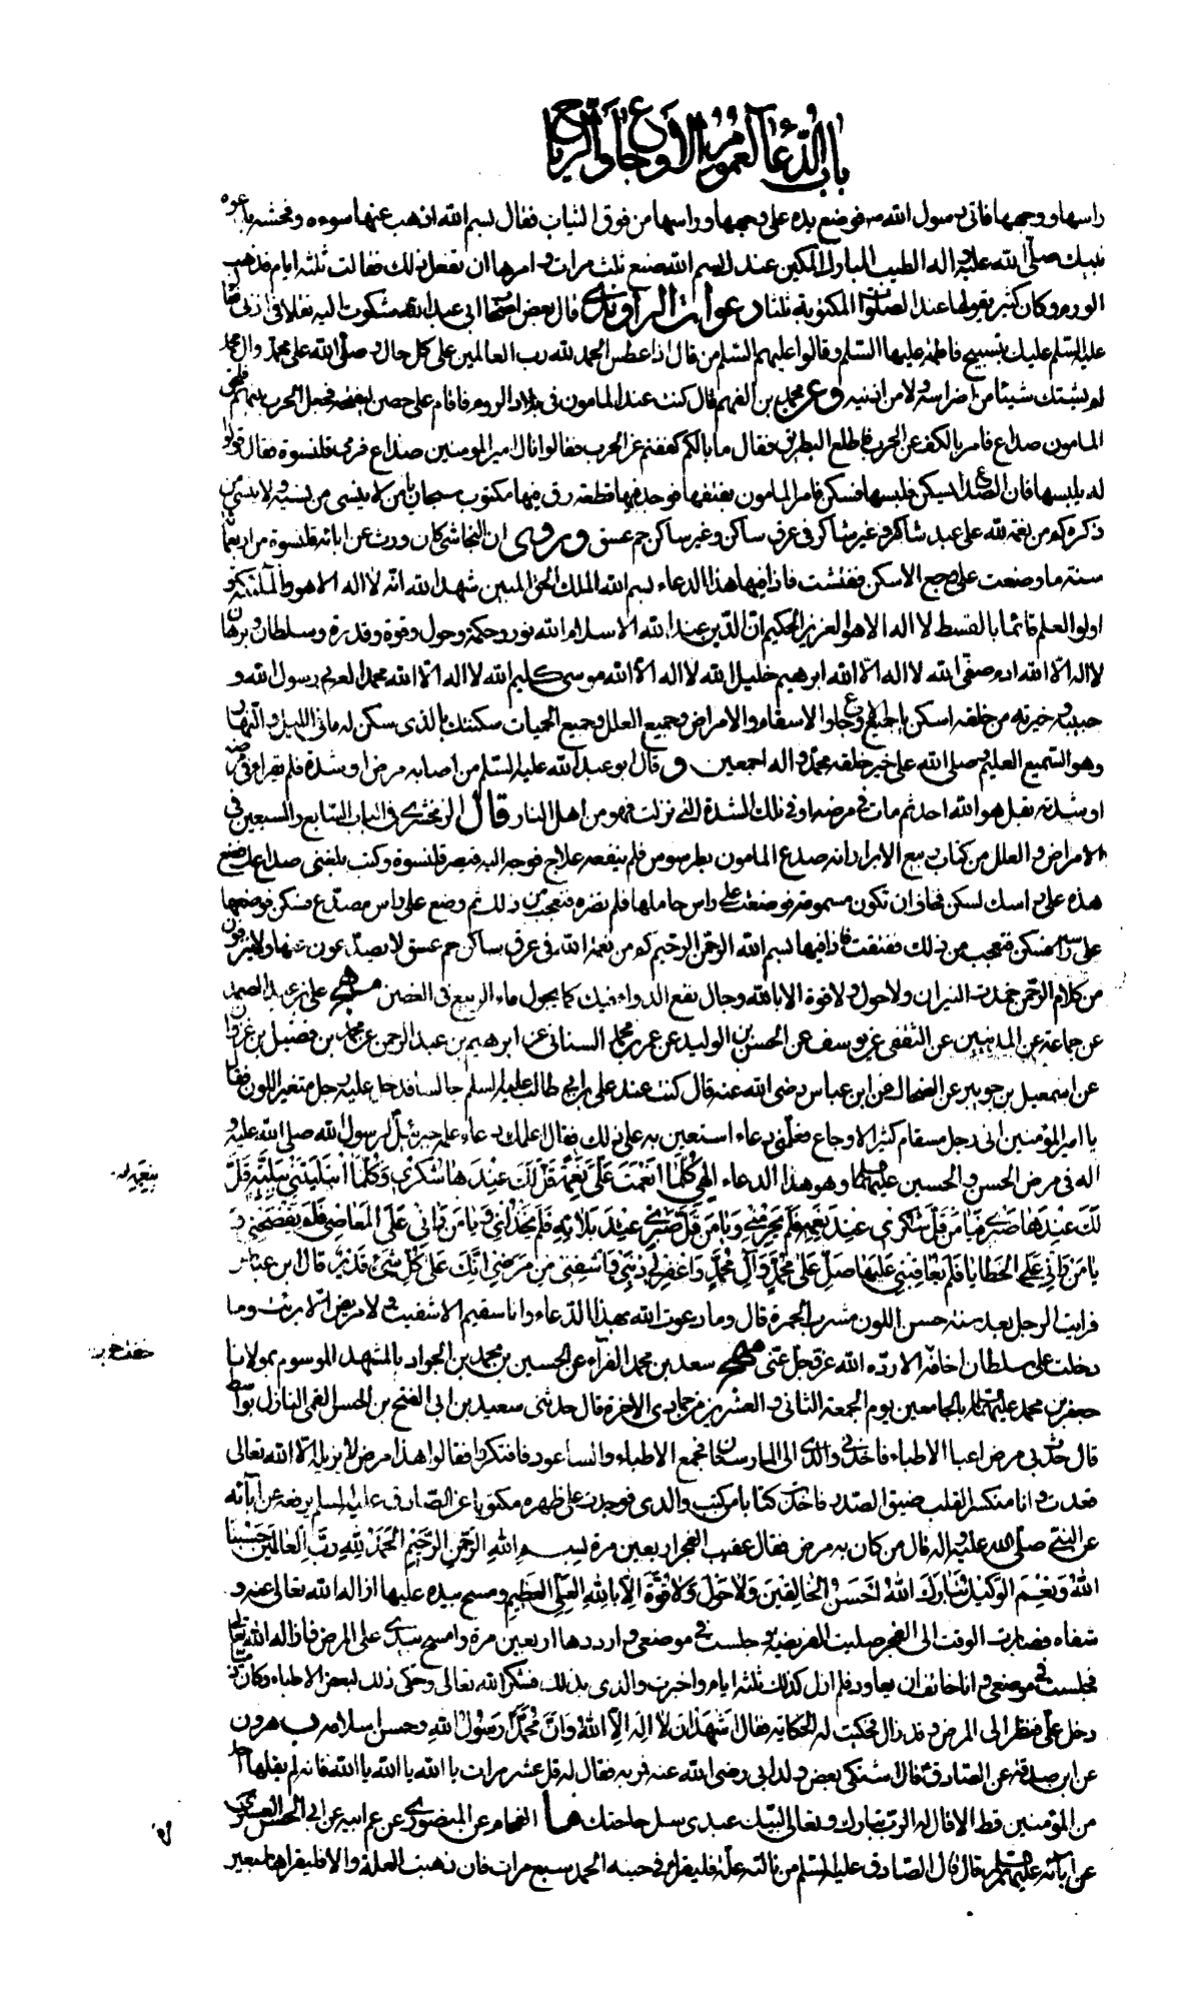 باب الدعاء لعموم الاوجاع والرياح
راسها ووجهها فاتى رسول الله ص فوضع يده على وجهها وراسها من فوق الثياب فقال بسم الله اذهب عنها سوءه وفحشه بدعوة
نبيك صلى الله عليه واله الطيب المبارك المكين عندك بسم الله صنع ثلث مرات وامرها ان تفعل ذلك فقالت ثلثة ايام فذهب
الورم وكان كثير يقولها عند الصلوات المكتوبة ثلثا دعوات الراوندي قال بعض اصحاب ابى عبد الله شكوت اليه ثقلا فى اذنى فقال
عليه السلم عليك بتسبيح فاطمة عليها السلم وقالوا عليهم السلم من قال اذا عطس الحمد لله رب العالمين على كل حال وصلى الله على محمد وال محمد
لم يشتك شيئا من اضراسه ولا من اذنيه وعن محمد بن الفهم قال كنت عند المامون فى بلاد الروم فاقام على حصن ليفتحه فجعل الحرب بينهم فلحق
المامون صداع فامر بالكف عن الحرب فاطلع البطريق فقال ما بالكم كففتم عن الحرب فقالوا نال امير المومنين صداع فرمى قلنسوة فقال قولوا
له يلبسها فان الصداع يسكن فلبسها فسكن فامر المامون بفتقها فوجد فيها قطعة رق فيها مكتوب سبحان يا من لا ينسى من نسيه ولا ينسى من
ذكره كم من نعمة لله على عبد شاكر وغير شاكر فى عرق ساكن وغير ساكن حم عسق وروى ان النجاشى كان ورث عن ابائه قلنسوة من اربعمائة
سنة ما وضعت على وجع الا سكن ففتشت فاذا فيها هذا الدعاء بسم الله الملك الحق المبين شهد الله انه لا اله الا هو والملئكة و
اولوا العلم قائما بالقسط لا اله الا هو العزيز الحكيم ان الدين عند الله الاسلام الله نور وحكمة وحول وقوة وقدرة وسلطان وبرهان
لا اله الا الله ادم صفى الله لا اله الا الله ابرهيم خليل الله لا اله الا الله موسى كليم الله لا اله الا الله محمد العربى رسول الله و
حبيبه وخيرته من خلقه اسكن يا جميع الاوجاع والاسقام والامراض وجميع العلل وجميع الحميات سكنتك بالذى سكن له ما فى الليل والنهار
وهو السميع العليم وصلى الله على خير خلقه محمد واله اجمعين وقال ابو عبد الله عليه السلم من اصابه مرض او شدة فلم يقرا فى مرضه
او شدته بقل هو الله احد ثم مات فى مرضه او فى تلك الشدة التى نزلت فهو من اهل النار قال الزمخشرى فى الباب السابع والسبعين فى
الامراض والعلل من كتاب ربيع الابرار انه صدع المامون بطرسوس فلم ينفعه علاج فوجه اليه قيصر قلنسوة وكتب بلغنى صداعك فضع
هذه على راسك لسكن فخاف ان تكون مسمومة فوضعت على راس حاملها فلم تضره فتعجب من ذلك ثم وضع على راس مصدع فسكن فوضعها
على راسه فسكن فتعجب من ذلك ففتقت فاذا فيها بسم الله الرحمن الرحيم كم من نعمة الله فى عرق ساكن حم عسق لا يصدعون عنها ولا ينزفون
من كلام الرحمن خمدت النيران ولا حول ولا قوة الا بالله وجال نفع الدواء فيك كما يجول ماء الربيع فى الغصن على بن عبد الصمد
عن جماعة عن المدنيين عن الثقفى عن يوسف عن الحسن بن الوليد عن عمر بن محمد السنانى عن ابرهيم بن عبد الرحمن عن محمد بن فضيل بن غزوان
عن اسمعيل بن جويبر عن الضحاك عن ابن عباس رضى الله عنه قال كنت عند على بن ابى طالب عليه السلم جالسا فدخل عليه رجل متغير اللون فقال
يا امير المؤمنين انى رجل مسقام كثير الاوجاع فعلمنى دعاء استعين به على ذلك فقال اعلمك دعاء علمه جبرئيل لرسول الله صلى الله عليه و
اله فى مرض الحسن والحسين عليهما السلم وهو هذا الدعاء الهى كُلَّمَا اَنْعَمْتَ عَلَىَّ نِعْمَةً قَلَّ لَكَ عِنْدَهَا شُكْرِى وَكُلَّمَا ابْتَلَيْتَنِى بِبَلِيَّةٍ قَلَّ
لَكَ عِنْدَهَا صَبْرِى فَيَا مَنْ قَلَّ شُكْرِى عِنْدَ نِعَمِهِ فَلَمْ يَحْرِمْنِى وَيَا مَنْ قَلَّ صَبْرِى عِنْدَ بَلَائِهِ فَلَمْ يَخْذُلْنِى وَيَا مَنْ رَانِى عَلَى الْمَعَاصِى فَلَمْ يَفْضَحْنِى وَ
يَا مَنْ رَانِى عَلَى الْخَطَايَا فَلَمْ يُعَاقِبْنِى عَلَيْهَا صَلِّ عَلَى مُحَمَّدٍ وَآلِ مُحَمَّدٍ وَاغْفِرْ لِى ذَنْبِى وَاشْفِنِى مِنْ مَرَضِى اِنَّكَ عَلَى كُلِّ شَىْءٍ قَدِيرٌ قال ابن عباس
فرايت الرجل بعد سنة حسن اللون مشرب الحمرة قال وما دعوت الله بهذا الدعاء وانا سقيم الا شفيت ولا مريض الا برئت وما
دخلت على سلطان اخافه الا رده الله عز وجل عنى سعد بن محمد الفراء عن الحسين بن محمد بن الجواد بالمشهد الموسوم بمولانا
جعفر بن محمد عليهما السلم بالجامعين يوم الجمعة الثانى والعشرين من جمادى الاخرة قال حدثنى سعيد بن ابى الفتح بن الحسن القمى النازل بواسط
قال حدث بى مرض اعيا الاطباء فاخذنى والدى الى المارستان فجمع الاطباء والساعود فافتكروا فقالوا هذا مرض لا يزيله الا الله تعالى
فعدت وانا منكسر القلب ضيق الصدر فاخذت كتابا من كتب والدى فوجدت على ظهره مكتوبا عن الصادق عليه السلم يرفعه عن ابائه
عن النبى صلى الله عليه واله قال من كان به مرض فقال عقيب الفجر اربعين مرة بِسْمِ اللهِ الرَّحْمَنِ الرَّحِيمِ الْحَمْدُ لِلهِ رَبِّ الْعَالَمِينَ حَسْبُنَا
اللهُ وَنِعْمَ الْوَكِيلُ تَبَارَكَ اللهُ اَحْسَنُ الْخَالِقِينَ وَلَا حَوْلَ وَلَا قُوَّةَ اِلَّا بِاللهِ الْعَلِىِّ الْعَظِيمِ ومسح بيده عليها ازاله الله تعالى عنه و
شفاه فصابرت الوقت الى الفجر صليت الفريضة وجلست فى موضعى وارددها اربعين مرة وامسح بيدى على المرض فازاله الله تعالى
فجلست فى موضعى وانا خائف ان يعاود فلم ازل كذلك ثلثة ايام واخبرت والدى بذلك فشكر الله تعالى وحكى ذلك لبعض الاطباء وكان ذميا
دخل على فنظر الى المرض وقد زال فحكيت له الحكاية فقال اَشْهَدُ اَنْ لَا اِلَهَ اِلَّا اللهُ وَاَنَّ مُحَمَّدًا رَسُولُ اللهِ وحسن اسلامه ب هرون
عن ابن صدقة عن الصادق ع قال اشتكى بعض ولد ابى رضى الله عنه فمر به فقال له قل عشر مرات يا الله يا الله يا الله فانه لم يقلها احد
من المؤمنين قط الا قال له الرب تبارك وتعالى لبيك عبدى سل حاجتك ما الفحام عن المنصورى عن عم ابيه عن ابى الحسن العسكرى
عن ابائه عليهم السلم قال قال الصادق عليه السلم من نالته علة فليقرا فى جيبه الحمد سبع مرات فان ذهبت العلة والا فليقراها سبعين